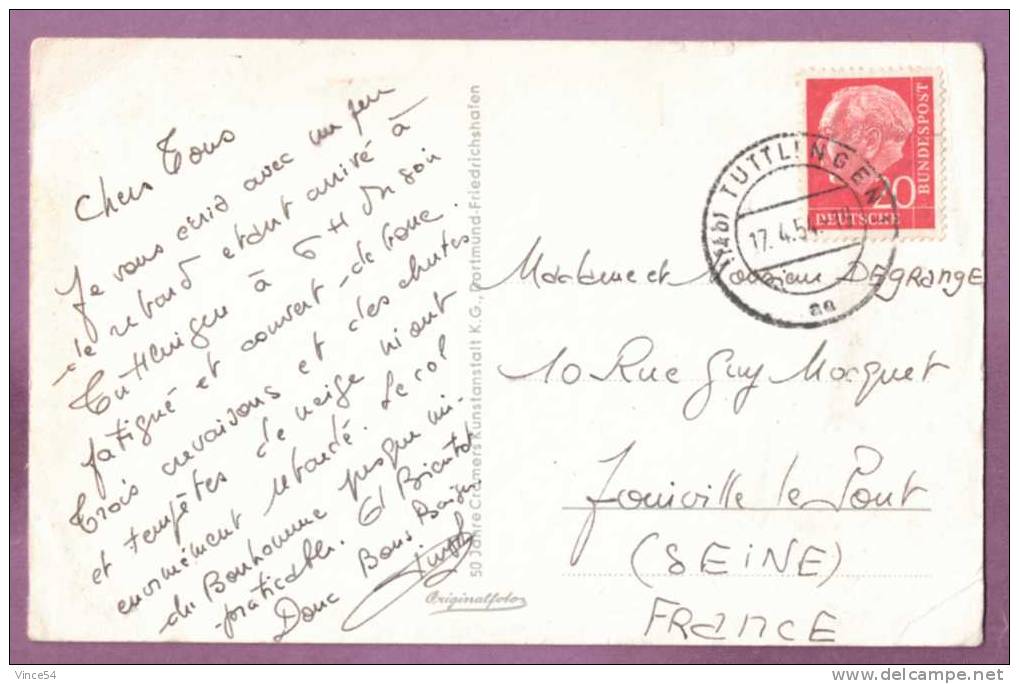 Chers Tous
Je vous écris avec un peu
de retard etant arrivé à
Tuttlingen à 6H du soir
fatigué et couvert de boue.
Trois crevaisons et des chutes
et tempêtes de neige m'ont
enormément retardé. Le col
du Bonhomme presque im-
praticable.
Donc Bons Baisers
et Bientot
50 Jahre Cramers Kunstanstalt K.G., Dortmund-Friedrichshafen
Originalfoto
20
DEUTSCHE
BUNDESPOST
TUTTLINGEN
17.4.54
aa
Madame et Monsieur DEGRANGE
10 Rue Guy Mocquet
Joinville le Pont
(SEINE)
FRANCE
Vince54
delcampe.net